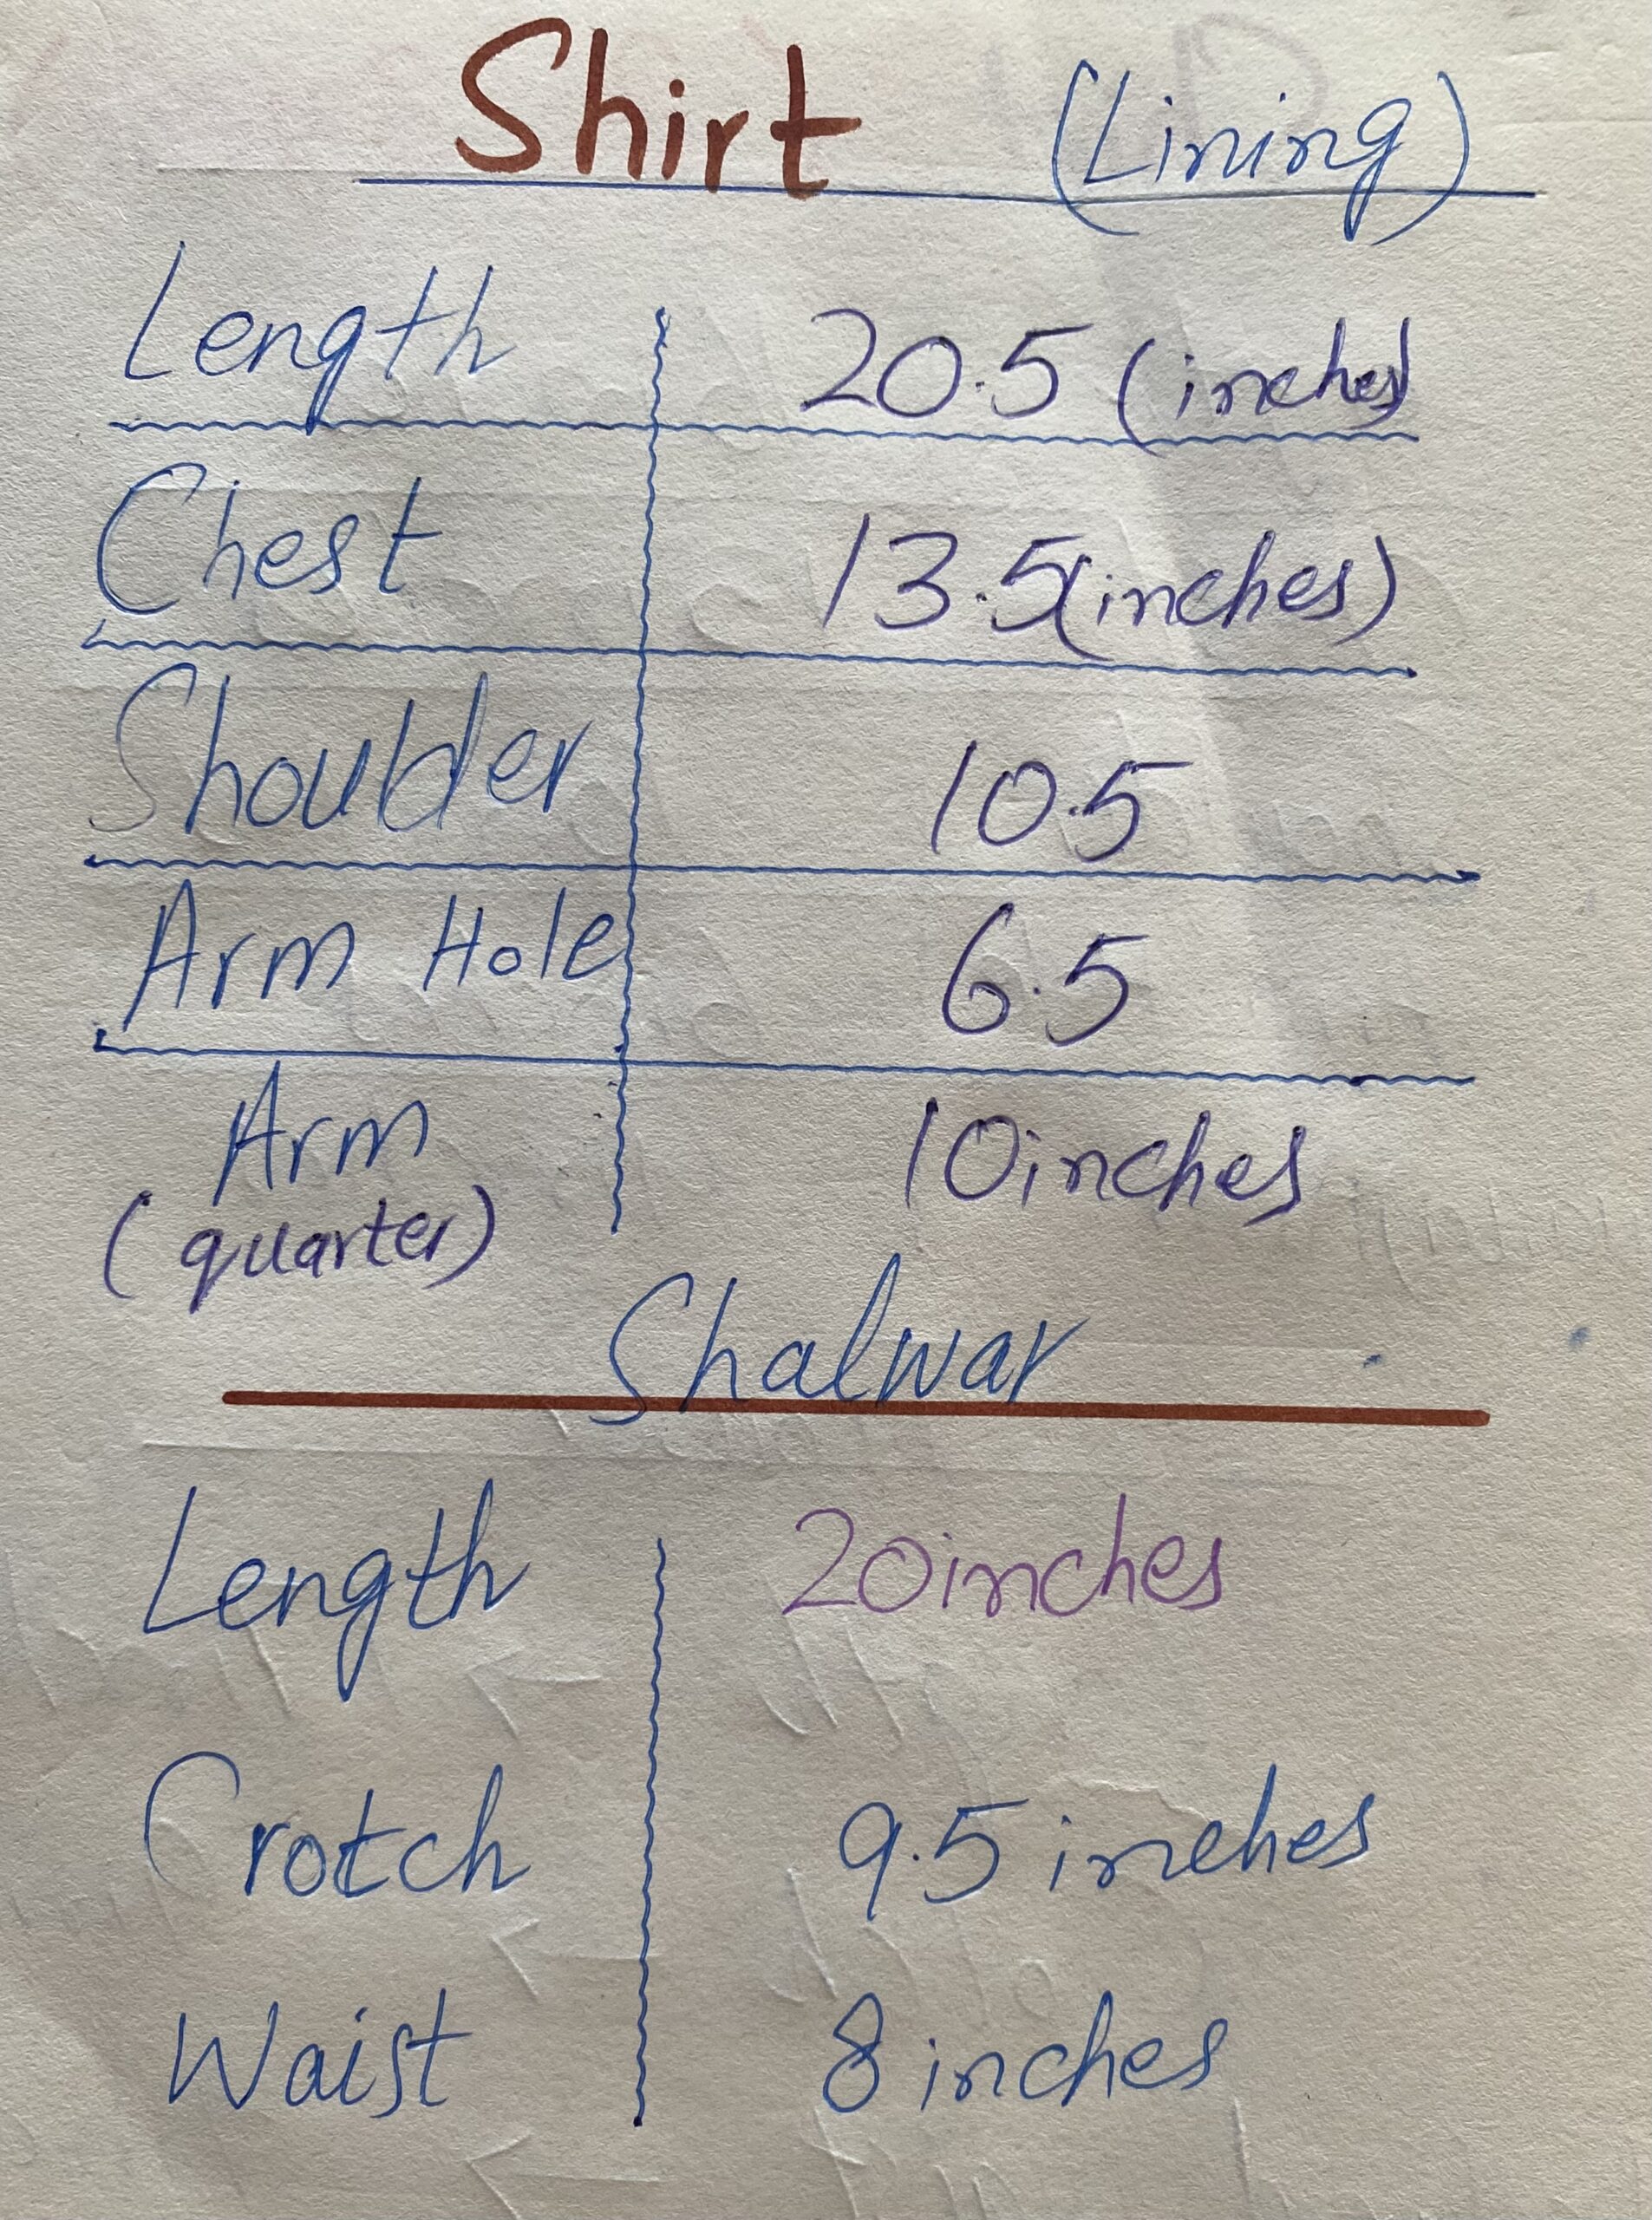 Shirt (Lining)
Length 20.5 (inches)
Chest 13.5 (inches)
Shoulder 10.5
Arm Hole 6.5
Arm 10 inches
(quarter)
Shalwar
Length 20 inches
Crotch 9.5 inches
Waist 8 inches